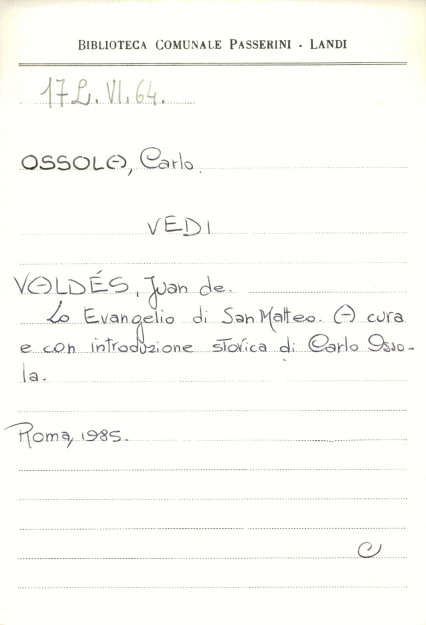 BIBLIOTECA COMUNALE PASSERINI - LANDI
17 L. VI. 64.
OSSOLA, Carlo.
VEDI
VALDÉS, Juan de.
Lo Evangelio di San Matteo. A cura
e con introduzione storica di Carlo Osso-
la.
Roma, 1985.
C